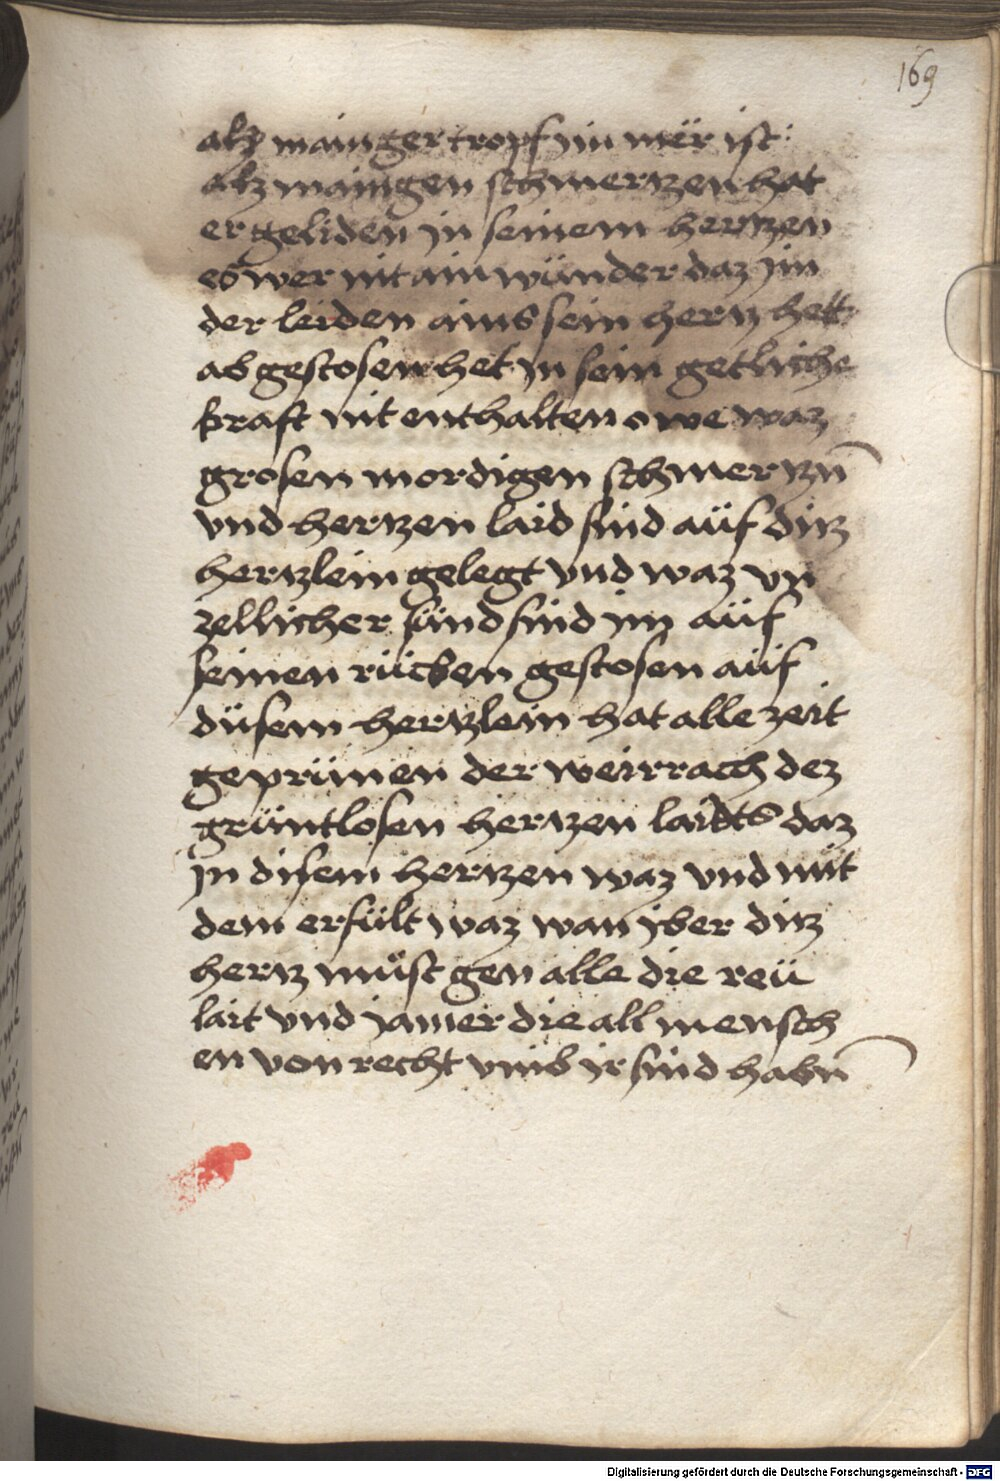 169
alz mainger tropf im mër ist:
alz maingen schmertzen hat
er geliden in seinem hertzen
es wer nit ain wünder daz jm
der leiden ains sein hertz hett
ab gestosen het jn sein getliche
kraft nit enthalten o we waz
grosen mordigen schmertzn̄
vnd hertzen laid sind aüf ditz
hertzlein gelegt vnd waz vn
zellicher sünd sind jm aüf
seinen rücken gestosen aüf
düsem hertzlein hat alle zeit
geprünen der weirrach dez
grüntlosen hertzen laidts daz
jn disem hertzen waz vnd mit
dem erfült waz wan jber ditz
hertz müst gen alle die reü
lait vnd jamer die all mensch
en von recht vmb ir sünd habn̄
Digitalisierung gefördert durch die Deutsche Forschungsgemeinschaft - DFG